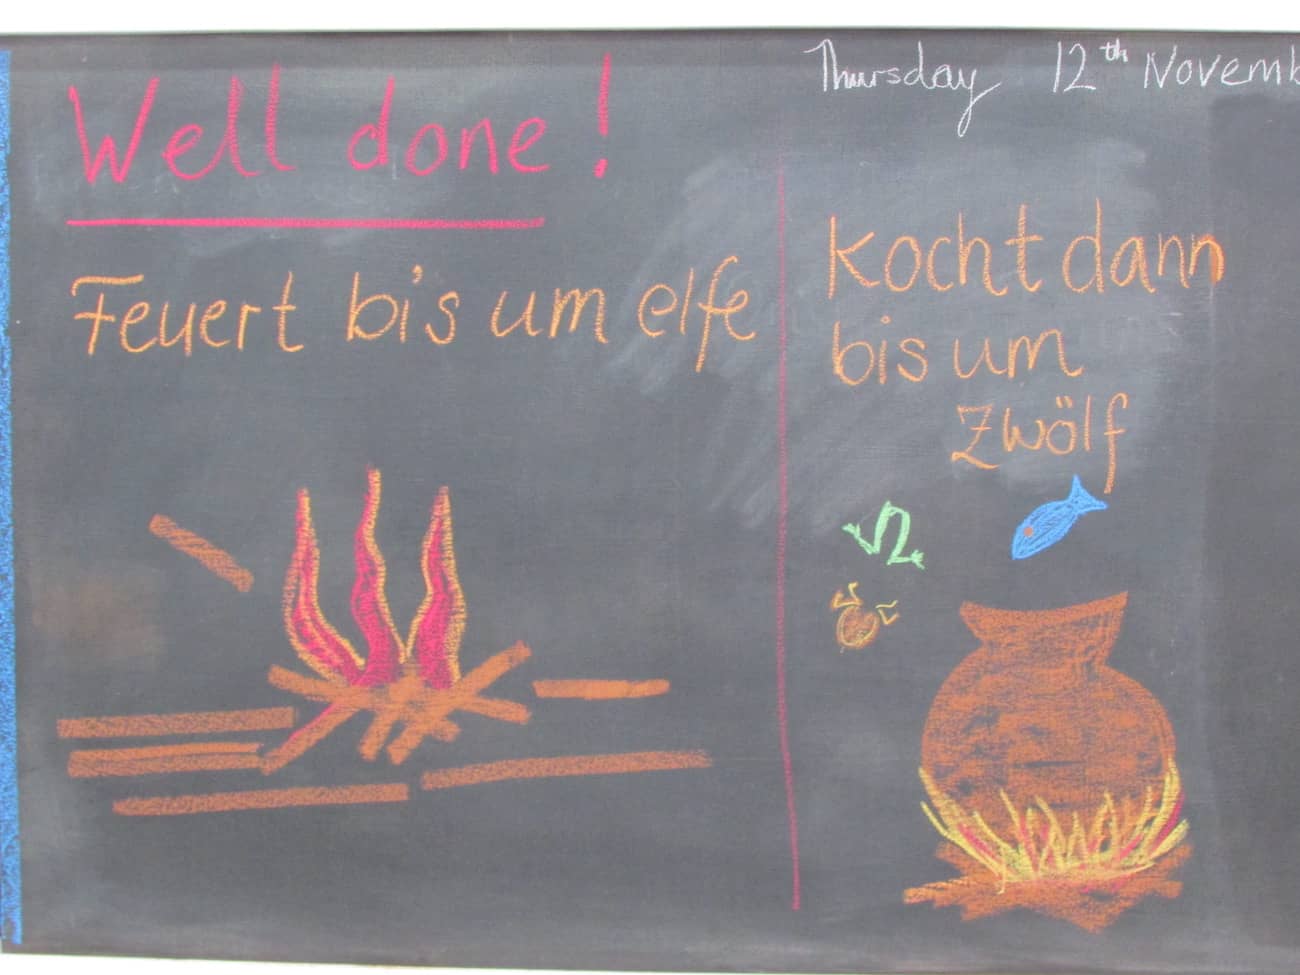 Well done!
Thursday 12th Novemb
Feuert bis um elfe
Kocht dann
bis um
zwölf